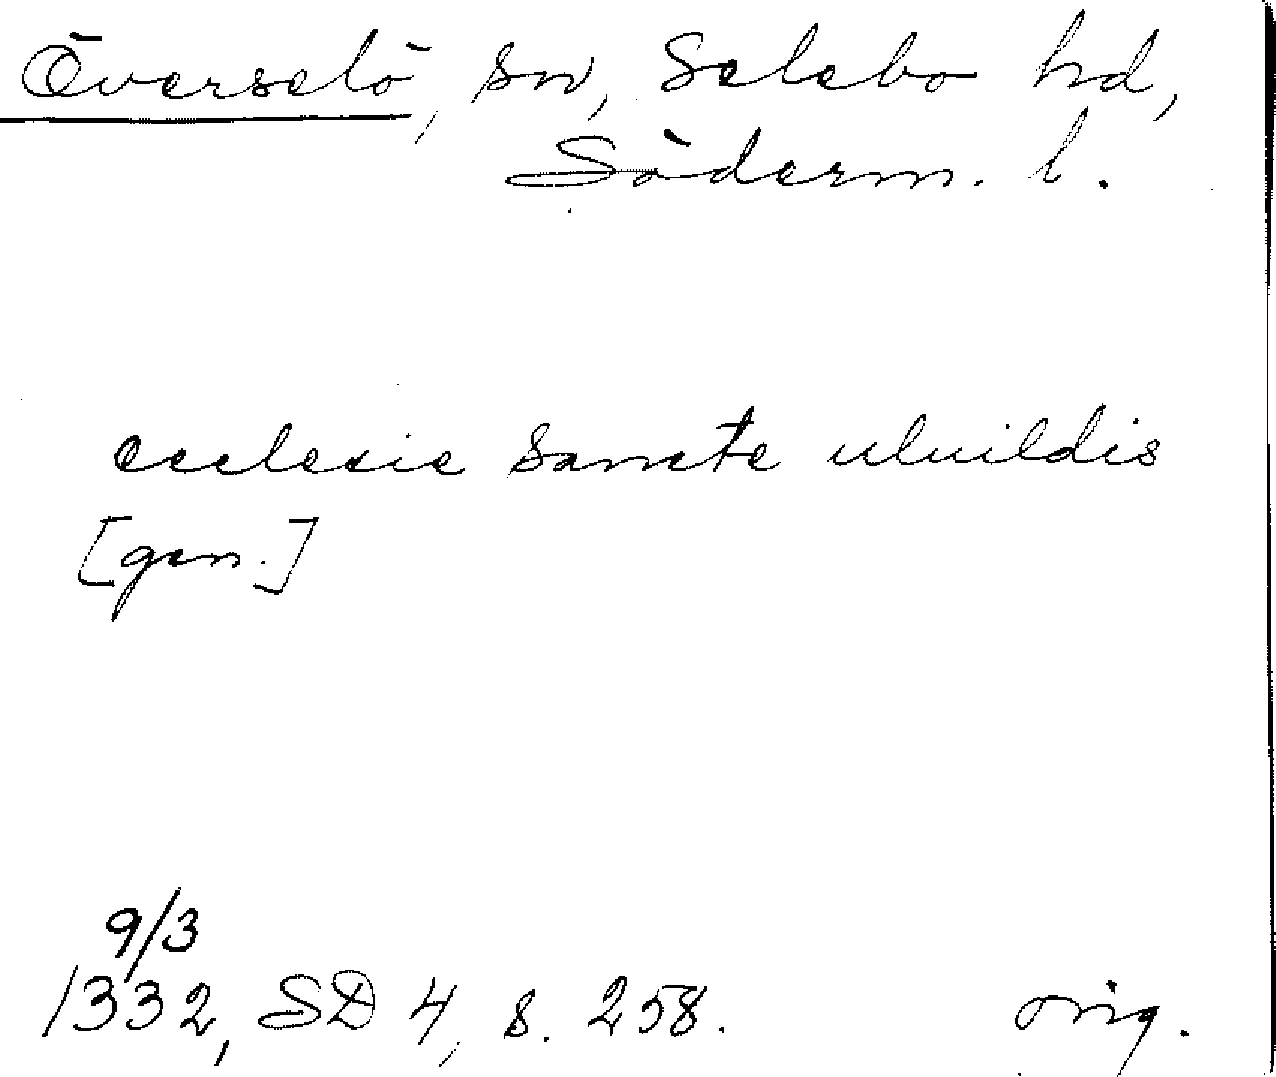 Överselö, sn, Selebo hd,
Söderm. l.
ecclesie sancte uluildis
[gen.]
9/3
1332, SD 4, s. 258. orig.